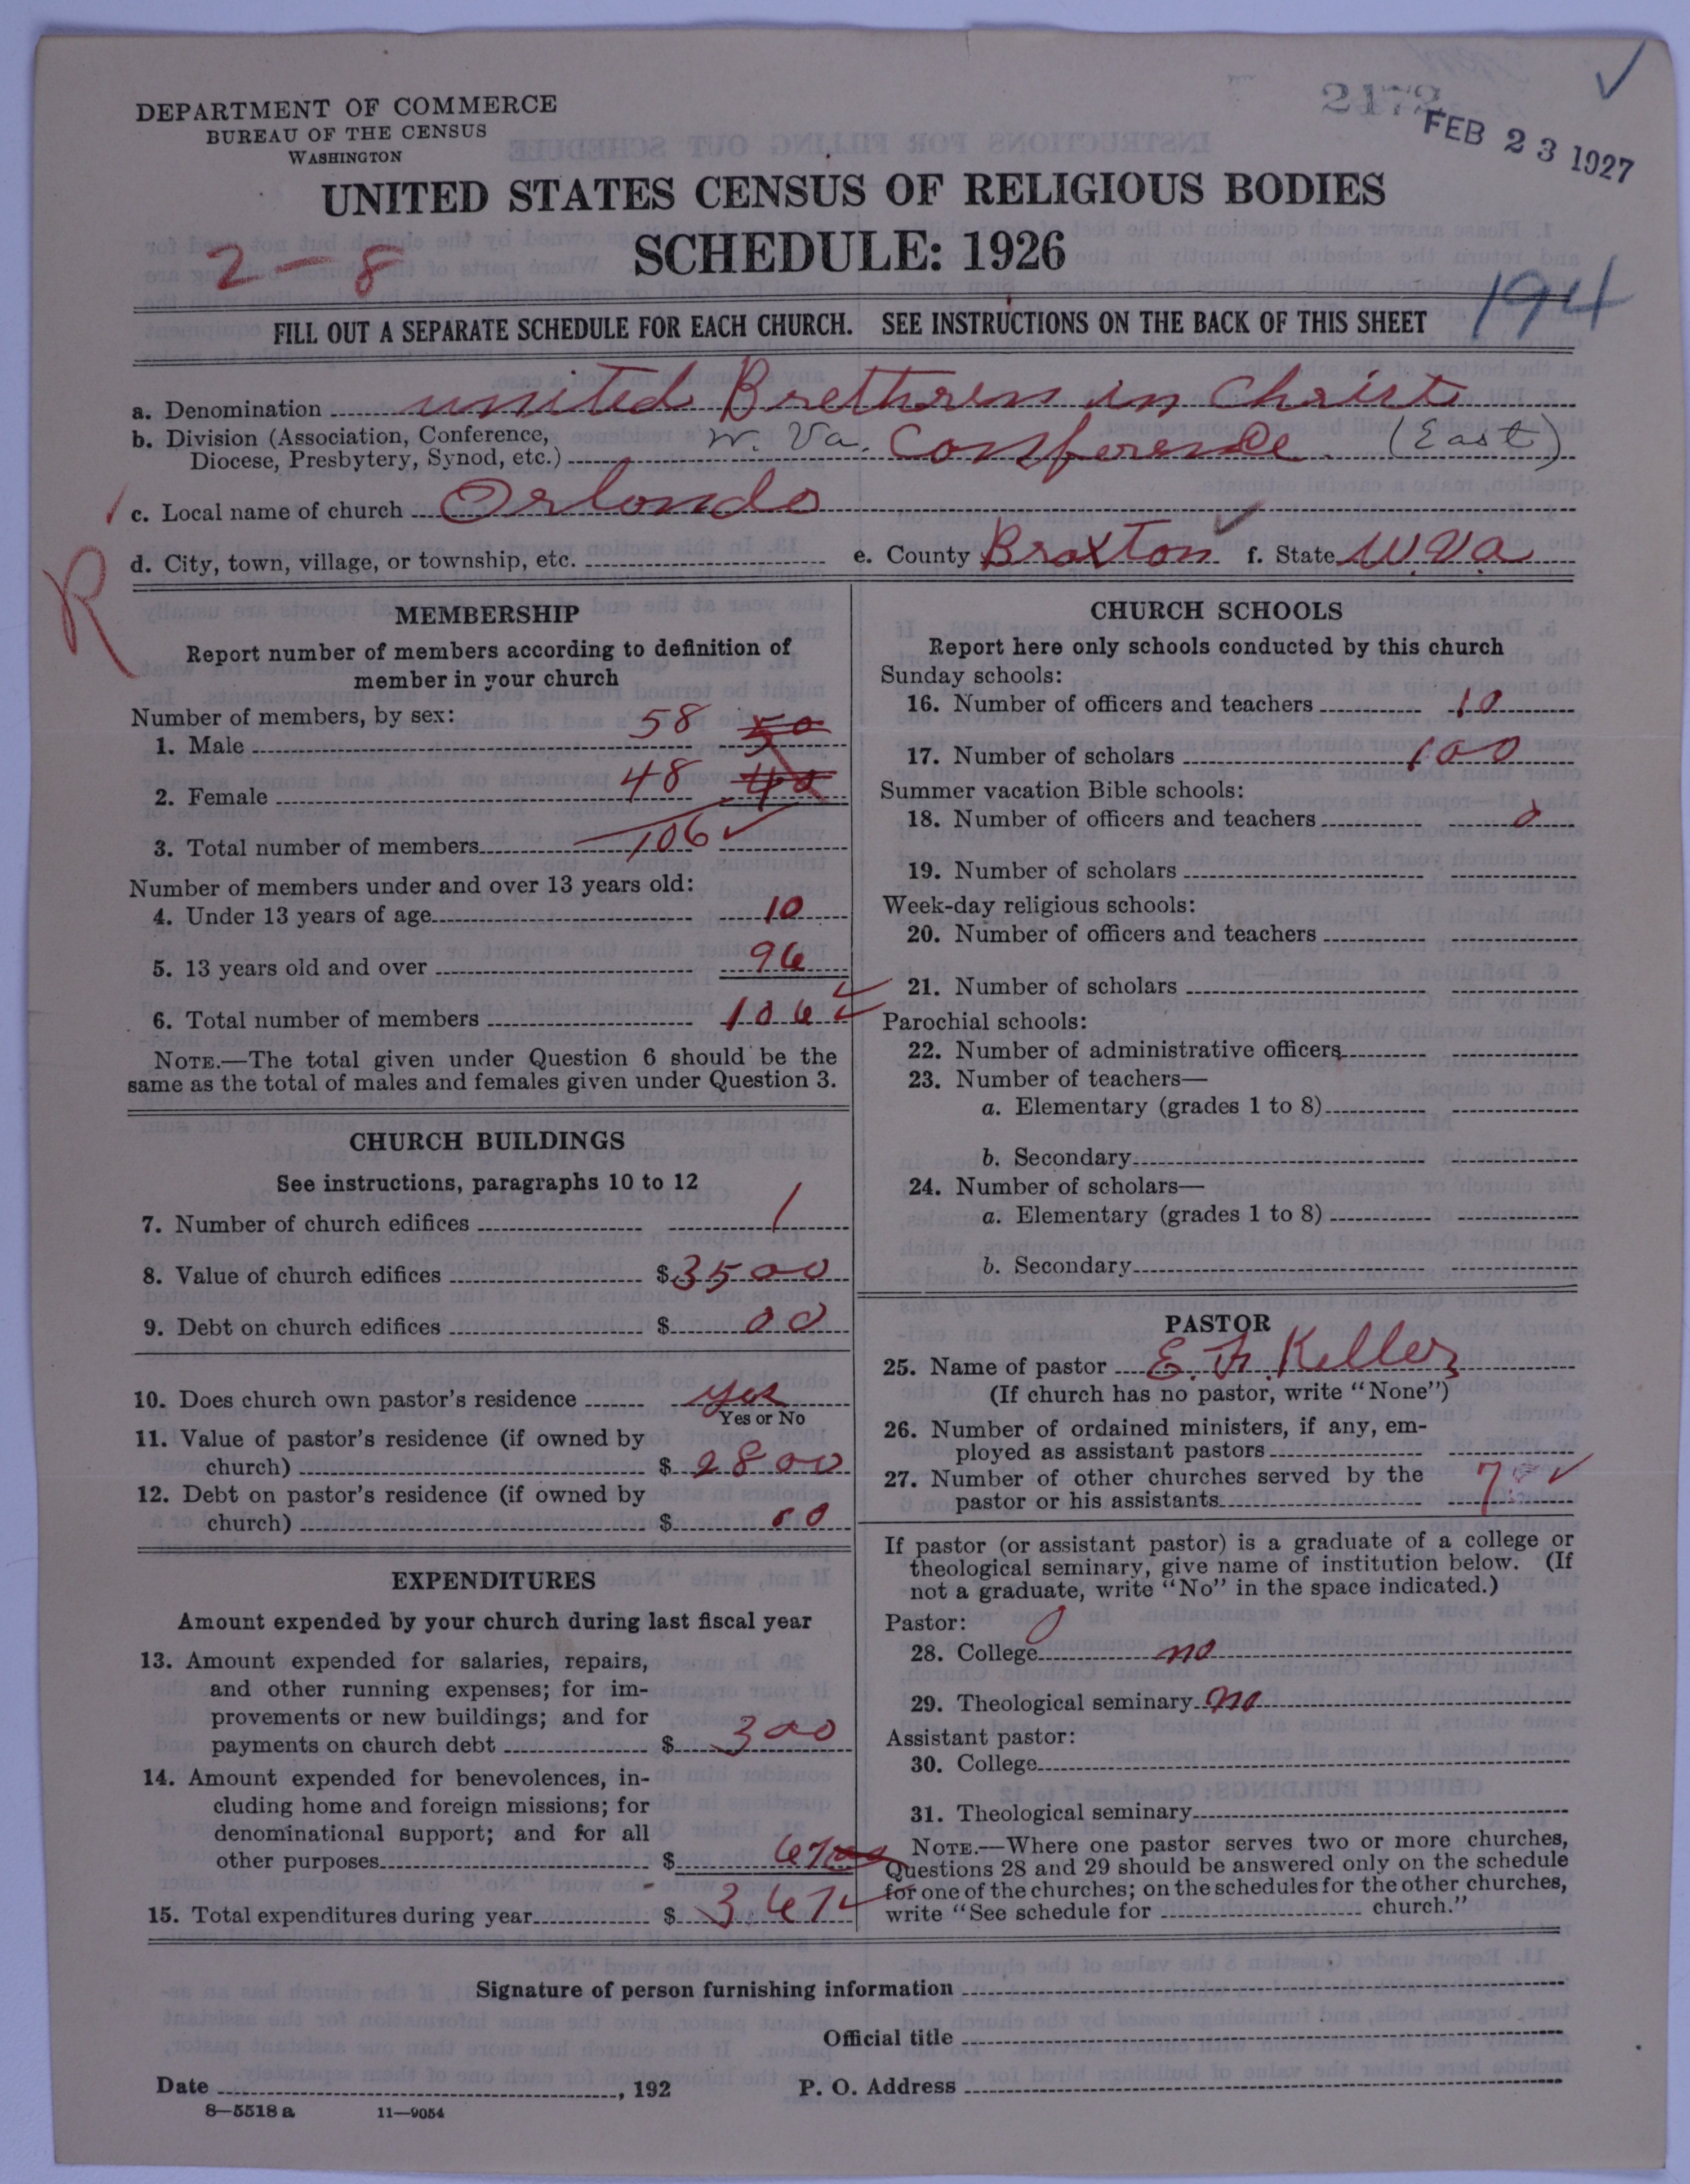 2172
FEB 23 1927
DEPARTMENT OF COMMERCE
BUREAU OF THE CENSUS
WASHINGTON
UNITED STATES CENSUS OF RELIGIOUS BODIES
SCHEDULE: 1926
2-8
194
FILL OUT A SEPARATE SCHEDULE FOR EACH CHURCH. SEE INSTRUCTIONS ON THE BACK OF THIS SHEET
a. Denomination united Brethren in Christ
b. Division (Association, Conference,
Diocese, Presbytery, Synod, etc.) W. Va. Conference (East)
c. Local name of church Orlando
d. City, town, village, or township, etc. e. County Braxton f. State W.Va
R
MEMBERSHIP
Report number of members according to definition of
member in your church
Number of members, by sex:
1. Male 58 50
2. Female 48 40
3. Total number of members 106
Number of members under and over 13 years old:
4. Under 13 years of age 10
5. 13 years old and over 96
6. Total number of members 106
NOTE.—The total given under Question 6 should be the
same as the total of males and females given under Question 3.
CHURCH BUILDINGS
See instructions, paragraphs 10 to 12
7. Number of church edifices 1
8. Value of church edifices $3500
9. Debt on church edifices $ 00
10. Does church own pastor's residence yes
Yes or No
11. Value of pastor's residence (if owned by
church) $ 2800
12. Debt on pastor's residence (if owned by
church) $ 00
EXPENDITURES
Amount expended by your church during last fiscal year
13. Amount expended for salaries, repairs,
and other running expenses; for im-
provements or new buildings; and for
payments on church debt $ 300
14. Amount expended for benevolences, in-
cluding home and foreign missions; for
denominational support; and for all
other purposes $ 67
15. Total expenditures during year $ 367
CHURCH SCHOOLS
Report here only schools conducted by this church
Sunday schools:
16. Number of officers and teachers 10
17. Number of scholars 100
Summer vacation Bible schools:
18. Number of officers and teachers 0
19. Number of scholars
Week-day religious schools:
20. Number of officers and teachers
21. Number of scholars
Parochial schools:
22. Number of administrative officers
23. Number of teachers—
a. Elementary (grades 1 to 8)
b. Secondary
24. Number of scholars—
a. Elementary (grades 1 to 8)
b. Secondary
PASTOR
25. Name of pastor E. Keller
(If church has no pastor, write "None")
26. Number of ordained ministers, if any, em-
ployed as assistant pastors
27. Number of other churches served by the
pastor or his assistants 7
If pastor (or assistant pastor) is a graduate of a college or
theological seminary, give name of institution below. (If
not a graduate, write "No" in the space indicated.)
Pastor: 0
28. College no
29. Theological seminary no
Assistant pastor:
30. College
31. Theological seminary
NOTE.—Where one pastor serves two or more churches,
Questions 28 and 29 should be answered only on the schedule
for one of the churches; on the schedules for the other churches,
write "See schedule for church."
Signature of person furnishing information
Official title
Date , 192 P. O. Address
8—5518 a 11—9054